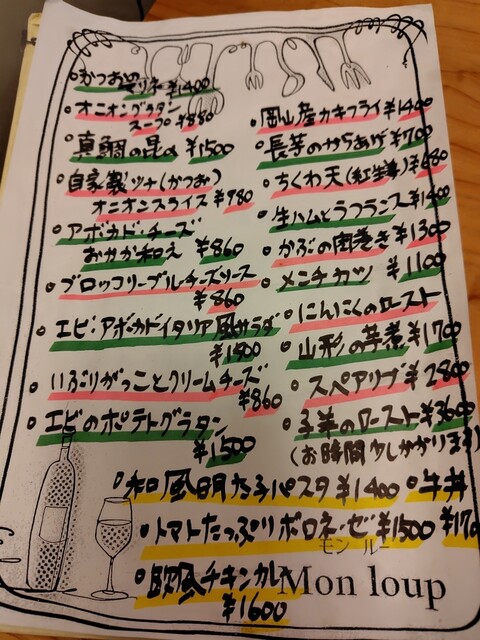 かつおのマリネ ¥1400
オニオングラタン
スープ ¥880
真鯛の昆〆 ¥1500
自家製ツナ(かつお)
オニオンスライス ¥980
アボカド・チーズ
おかか和え ¥860
ブロッコリーブルーチーズソース
¥860
エビ・アボカドイタリア風サラダ
¥1800
いぶりがっことクリームチーズ
¥860
エビのポテトグラタン
¥1500
岡山産カキフライ ¥1400
長芋のからあげ ¥700
ちくわ天(紅生姜) ¥680
生ハムとラフランス ¥1400
かぶの肉巻き ¥1300
メンチカツ ¥1100
にんにくのロースト
山形の芋煮 ¥1700
スペアリブ ¥2800
子羊のロースト ¥3600
(お時間少しかかります)
和風明太子パスタ ¥1400
牛丼
¥170
トマトたっぷりボロネーゼ ¥1500
欧風チキンカレー
¥1600
モン ルー
Mon loup